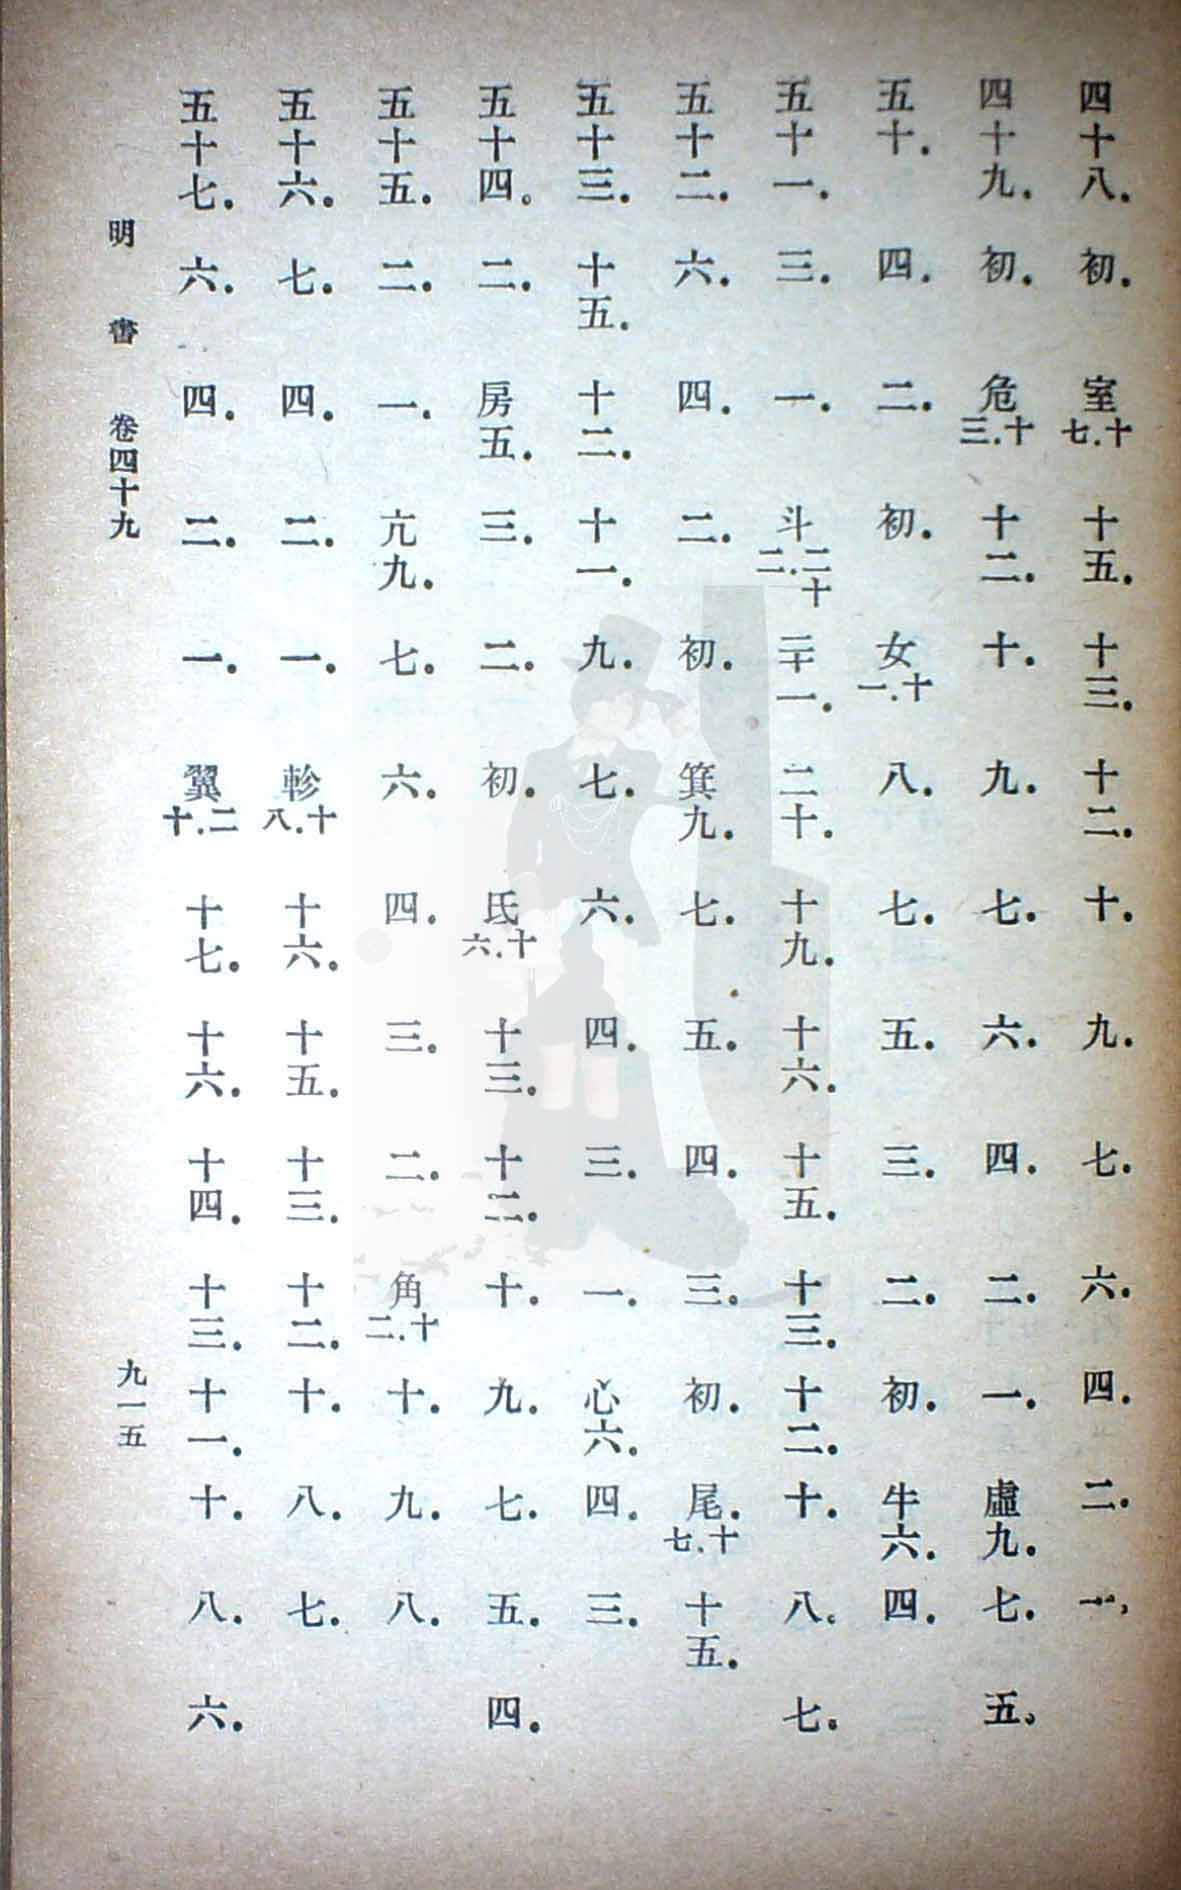 四十八．初．室七．十十五．十三．十二．十．九．七．六．四．二．一．
四十九．初．危三．十十二．十．九．七．六．四．二．一．虛九．七．五．
五十．四．二．初．女一．十八．七．五．三．二．初．牛六．四．
五十一．三．一．斗二．二十二十一．二十．十九．十六．十五．十三．十二．十．八．七．
五十二．六．四．二．初．箕九．七．五．四．三．初．尾．七．十十五．
五十三．十五．十二．十一．九．七．六．四．三．一．心六．四．三．
五十四．二．房五．三．二．初．氐六．十十三．十二．十．九．七．五．四．
五十五．二．一．亢九．七．六．四．三．二．角二．十十．九．八．
五十六．七．四．二．一．軫八．十十六．十五．十三．十二．十．八．七．
五十七．六．四．二．一．翼十．二十七．十六．十四．十三．十一．十．八．六．
明書 卷四十九 九一五